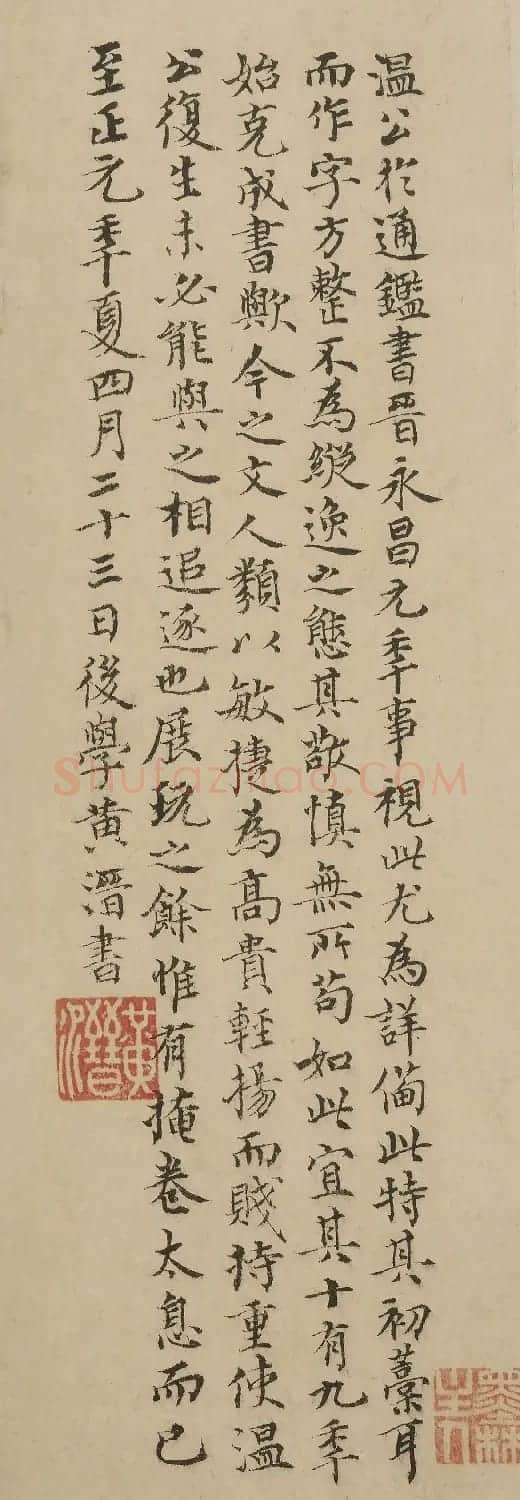 温公於通鑑書晉永昌元秊事視此尤為詳俻此特其初藁耳
而作字方整不為縱逸之態其敬慎無所苟如此宜其十有九秊
始克成書歟今之文人類以敏捷為髙貴輕揚而賤持重使温
公復生未必能與之相追逐也展玩之餘惟有掩卷太息而已
至正元秊夏四月二十三日後學黄溍書
黄溍